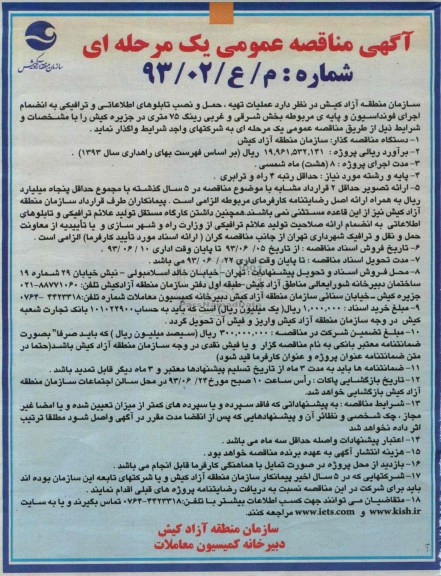 سازمان منطقه آزاد کیش
آگهی مناقصه عمومی یک مرحله ای
شماره : م/ع/۹۳/۰۲
سازمان منطقه آزاد کیش در نظر دارد عملیات تهیه ، حمل و نصب تابلوهای اطلاعاتی و ترافیکی به انضمام
اجرای فونداسیون و پایه ی مربوطه بخش شرقی و غربی رینگ ۷۵ متری در جزیره کیش را با مشخصات و
شرایط ذیل از طریق مناقصه عمومی یک مرحله ای به شرکتهای واجد شرایط واگذار نماید .
۱-دستگاه مناقصه گذار: سازمان منطقه آزاد کیش
۲-برآورد ریالی پروژه : ۱۹,۹۶۱,۵۳۲,۱۳۱ ریال (بر اساس فهرست بهای راهداری سال ۱۳۹۳) .
۳- مدت اجرای پروژه : ۸ (هشت) ماه شمسی .
۴- پایه و رشته مورد نیاز : حداقل رتبه ۴ راه و ترابری .
۵- ارائه تصویر حداقل ۲ قرارداد مشابه با موضوع مناقصه در ۵ سال گذشته با مجموع حداقل پنجاه میلیارد
ریال به همراه ارائه اصل رضایتنامه کارفرمای مربوطه الزامی است . پیمانکاران طرف قرارداد سازمان منطقه
آزاد کیش نیز از این قاعده مستثنی نمی باشند.همچنین داشتن کارگاه مستقل تولید علائم ترافیکی و تابلوهای
اطلاعاتی به انضمام ارائه صلاحیت تولید علائم ترافیکی از وزارت راه و شهر سازی و یا تأییدیه از معاونت
حمل و نقل و ترافیک شهرداری تهران از جانب مناقصه گران ( ارائه اسناد مورد تأیید کارفرما) الزامی است .
۶-تاریخ فروش اسناد مناقصه : از تاریخ ۹۳/۰۶/۰۵ تا پایان وقت اداری ۹۳/۰۶/۱۰ .
۷- مدت تحویل اسناد مناقصه : تا پایان وقت اداری ۹۳/۰۶/۲۲ می باشد .
۸-محل فروش اسناد و تحویل پیشنهادات: تهران - خیابان خالد اسلامبولی – نبش خیابان ۲۹ شماره ۱۹
ساختمان دبیرخانه شورایعالی مناطق آزاد کیش-طبقه اول دفتر سازمان منطقه آزادکیش تلفن: ۸۸۷۷۱۰۶۰-۰۲۱
جزیره کیش – خیابان سنائی سازمان منطقه آزاد کیش دبیرخانه کمیسیون معاملات شماره تلفن:۴۴۲۳۳۱۸-۰۷۶۴
۹-مبلغ خرید اسناد : ۱,۰۰۰,۰۰۰ ریال( یک میلیون ریال) است که باید به حساب ۱۰۱۰۲۲۹۰۰ بانک تجارت شعبه
کیش در وجه سازمان منطقه آزاد کیش واریز و فیش آن تحویل گردد .
۱۰-مبلغ تضمین شرکت در مناقصه: ۳۰۰,۰۰۰,۰۰۰ ریال (سیصد میلیون ریال ) که باید صرفا" بصورت
ضمانتنامه معتبر بانکی به نام مناقصه گزار و یا فیش نقدی در وجه سازمان منطقه آزاد کیش باشد(حتما در
متن ضمانتنامه عنوان پروژه و عنوان کارفرما قید شود)
۱۱- ضمانتنامه ها باید به مدت ۳ ماه از تاریخ تسلیم پیشنهادها معتبر و ۳ ماه دیگر قابل تمدید باشد .
۱۲-تاریخ بازگشایی پاکات : رأس ساعت ۱۰ صبح مورخ۹۳/۰۶/۲۴ در محل سالن اجتماعات سازمان منطقه
آزاد کیش بازگشایی خواهد شد.
۱۳-شرایط مناقصه : به پیشنهاداتی که فاقد سپرده و یا سپرده های کمتر از میزان تعیین شده و یا امضا غیر
مجاز ، چک شخصی و نظائر آن و پیشنهادهایی که پس از انقضا مدت مقرر در آگهی واصل شود مطلقا ترتیب
اثر داده نخواهد شد
۱۴- اعتبار پیشنهادات واصله حداقل سه ماه می باشد .
۱۵- هزینه انتشار آگهی به عهده برنده مناقصه خواهد بود .
۱۶- بازدید از محل پروژه در صورت تمایل با هماهنگی کارفرما قابل انجام می باشد .
۱۷-شرکتهایی که در ۵ سال اخیر پیمانکار سازمان منطقه آزاد کیش و یا شرکتهای تابعه این سازمان بوده اند
باید برای شرکت در این مناقصه نسبت به دریافت رضایتنامه پروژه های قبلی اقدام نمایند .
۱۸-متقاضیان می توانند جهت کسب اطلاعات بیشتر با تلفن:۴۴۲۳۳۱۸-۰۷۶۴ تماس بگیرند و یا به سایت
www.kish.ir و www.iets.com مراجعه کنند.
سازمان منطقه آزاد کیش
دبیرخانه کمیسیون معاملات